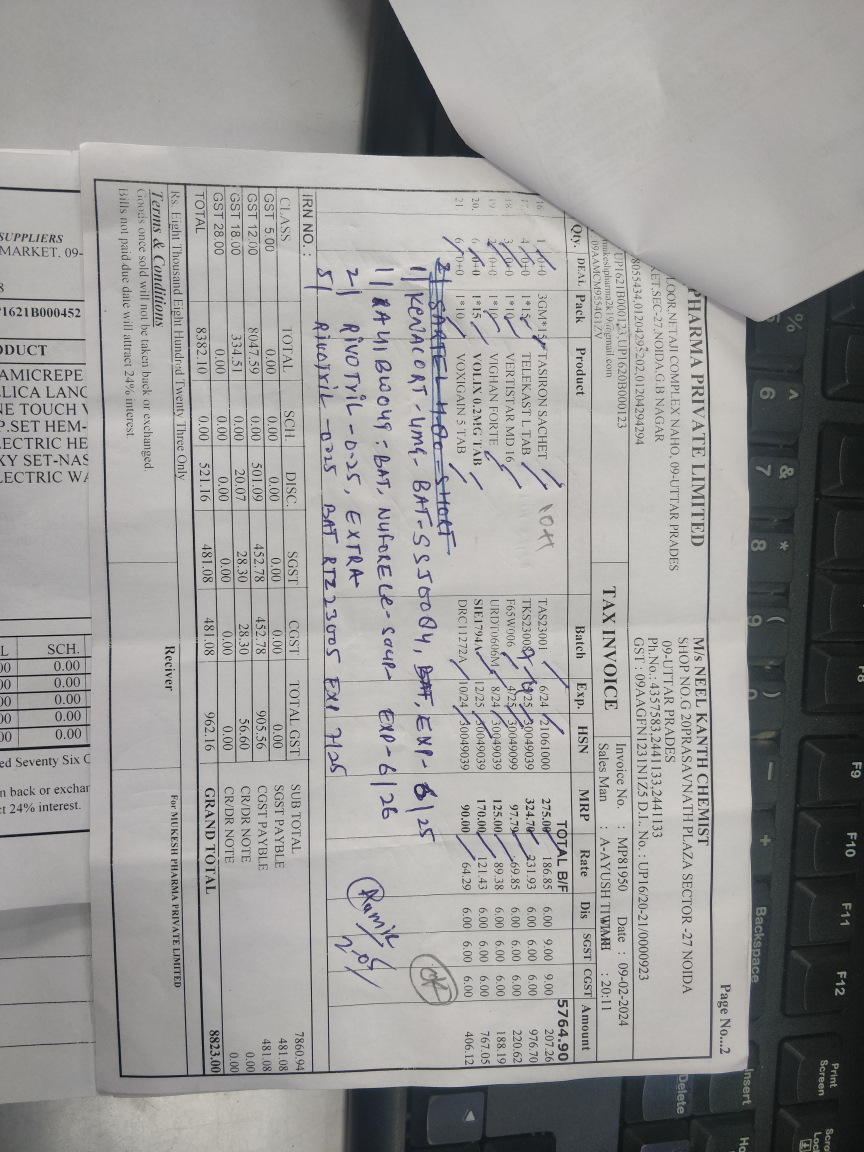 Page No...2
PHARMA PRIVATE LIMITED
LOOR,NETAJI COMPLEX NAHO, 09-UTTAR PRADES
KET.SEC-27,NOIDA,G.B NAGAR
8055434,01204295202,01204294294
UP1621B000123,UP1620B000123
mukeshpharma2k19@gmail.com
09AAMCM9554G1ZV
M/s NEEL KANTH CHEMIST
SHOP NO.G 20PRASAVNATH PLAZA SECTOR -27 NOIDA
09-UTTAR PRADES
Ph.No.: 4357583,2441133,2441133
GST : 09AAGFN1231N1Z5 D.L. No. : UP16/20-21/0000923
TAX INVOICE
Invoice No. : MP81950 Date : 09-02-2024
Sales Man : A-AYUSH TIWARI : 20:11
Qty. DEAL Pack Product Batch Exp. HSN MRP Rate Dis SGST CGST Amount
TOTAL B/F 5764.90
16. 1 0+0 3GM*15 TASIRON SACHET TAS23001 6/24 21061000 275.00 186.85 6.00 9.00 9.00 207.26
17. 4 0+0 1*15 TELEKAST L TAB 30049039 324.70 231.93 6.00 6.00 6.00 976.70
18. 3 0+0 1*10 VERTISTAR MD 16 F65W006 4/25 30049099 97.79 69.85 6.00 6.00 6.00 220.62
19. 2 0+0 VIGHAN FORTE URDT0606M 8/24 30049039 125.00 89.38 6.00 6.00 6.00 188.19
20. 6 0+0 1*15 VOLIX 0.2MG TAB SIE1794A 12/25 30049039 170.00 121.43 6.00 6.00 6.00 767.05
21 6 0+0 1*10 VOXIGAIN 5 TAB DRC11272A 10/24 30049039 90.00 64.29 6.00 6.00 6.00 406.12
OK
1) KENACORT - 4mg - BAT - SSJ0004, BAT, EXP- 6/25
1) BAT, EXP - 6/26
2) RIVOTRIL - 0-25, EXTRA
5) RIVOTRIL - 0.25 BAT RTZ23005 EXP 7/25
IRN NO. :
CLASS TOTAL SCH. DISC. SGST CGST TOTAL GST
GST 5.00 0.00 0.00 0.00 0.00 0.00 0.00
GST 12.00 8047.59 0.00 501.09 452.78 452.78 905.56
GST 18.00 334.51 0.00 20.07 28.30 28.30 56.60
GST 28.00 0.00 0.00 0.00 0.00 0.00 0.00
TOTAL 8382.10 0.00 521.16 481.08 481.08 962.16
SUB TOTAL 7860.94
SGST PAYBLE 481.08
CGST PAYBLE 481.08
CR/DR NOTE 0.00
CR/DR NOTE 0.00
GRAND TOTAL 8823.00
Rs. Eight Thousand Eight Hundred Twenty Three Only
Terms & Conditions
Goods once sold will not be taken back or exchanged.
Bills not paid due date will attract 24% interest.
Reciver
For MUKESH PHARMA PRIVATE LIMITED
SUPPLIERS
MARKET, 09-
8
1621B000452
DUCT
AMICREPE
LICA LANC
NE TOUCH V
P.SET HEM-
ECTRIC HE
XY SET-NAS
ECTRIC WA
L SCH.
00 0.00
00 0.00
00 0.00
00 0.00
00 0.00
ed Seventy Six C
n back or exchar
ct 24% interest.
%
^
6
&
7
*
8
(
9
)
0
_
+
Backspace
F8
F9
F10
F11
F12
Print
Screen
Insert
Delete